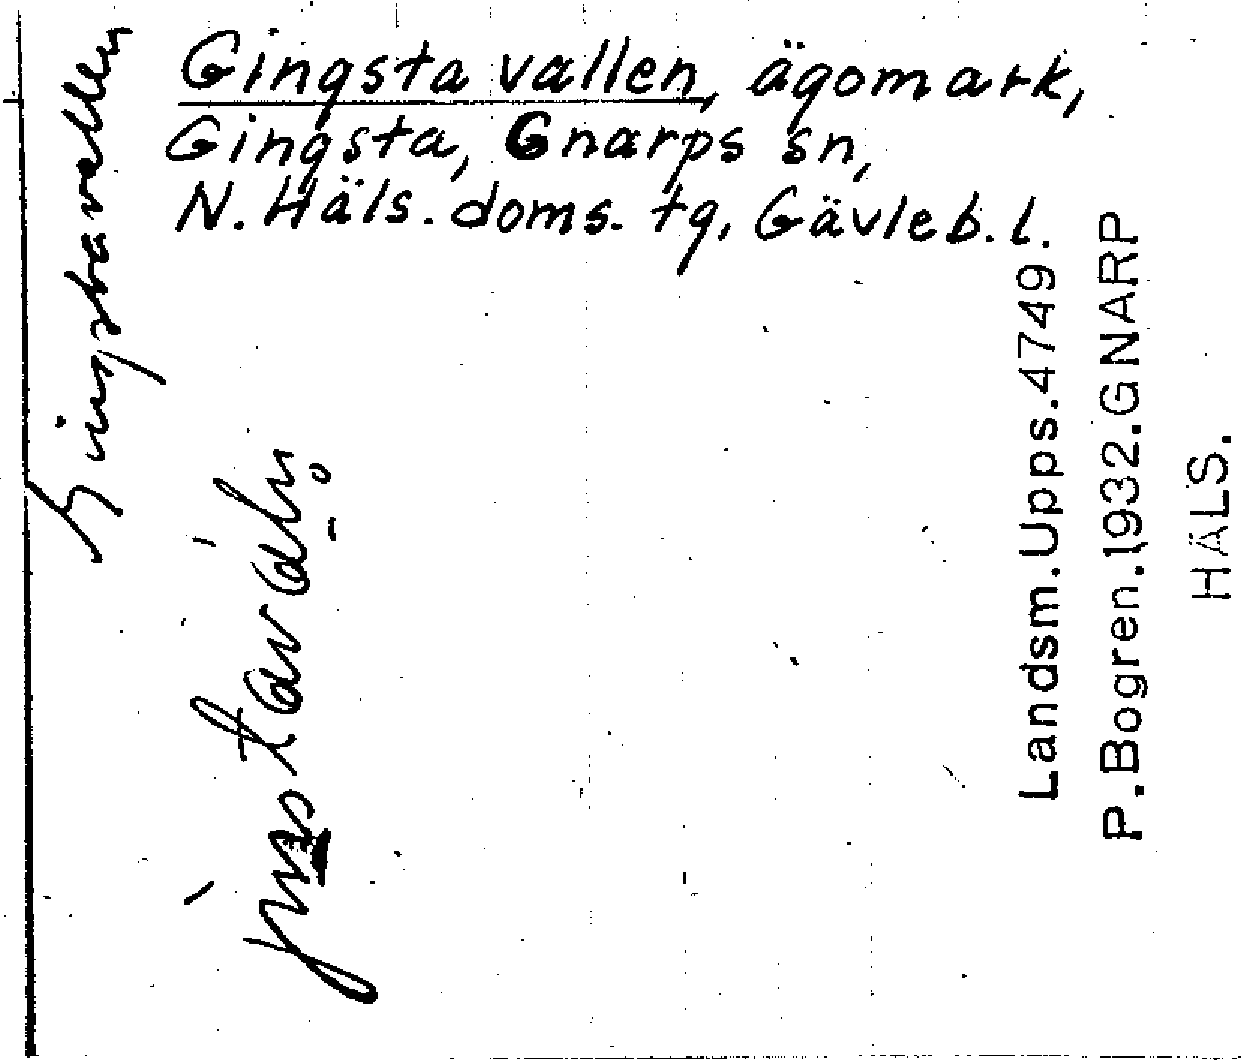 Gingsta vallen, ägomark,
Gingsta, Gnarps sn,
N. Häls. doms. tg, Gävleb. l.
Gingstavallen
Landsm. Upps. 4749.
P. Bogren. 1932. GNARP
HÄLS.